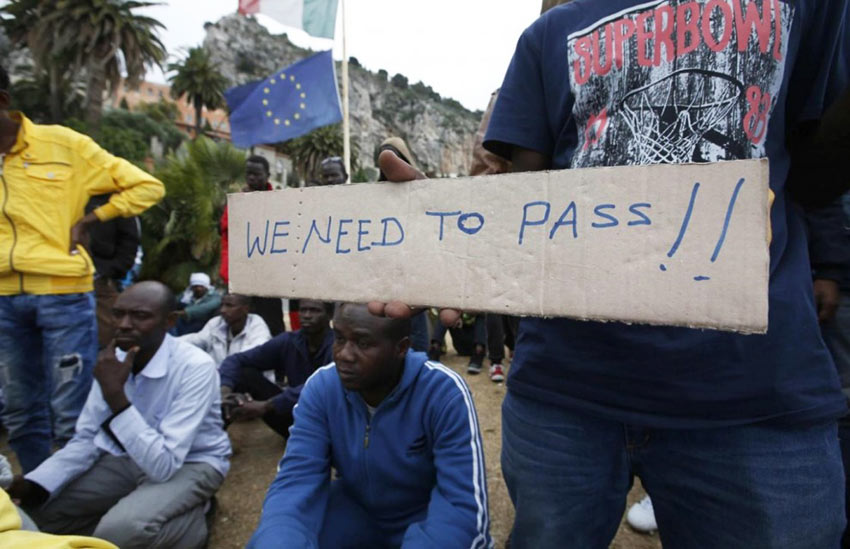 SUPERBOWL
WE NEED TO PASS!!